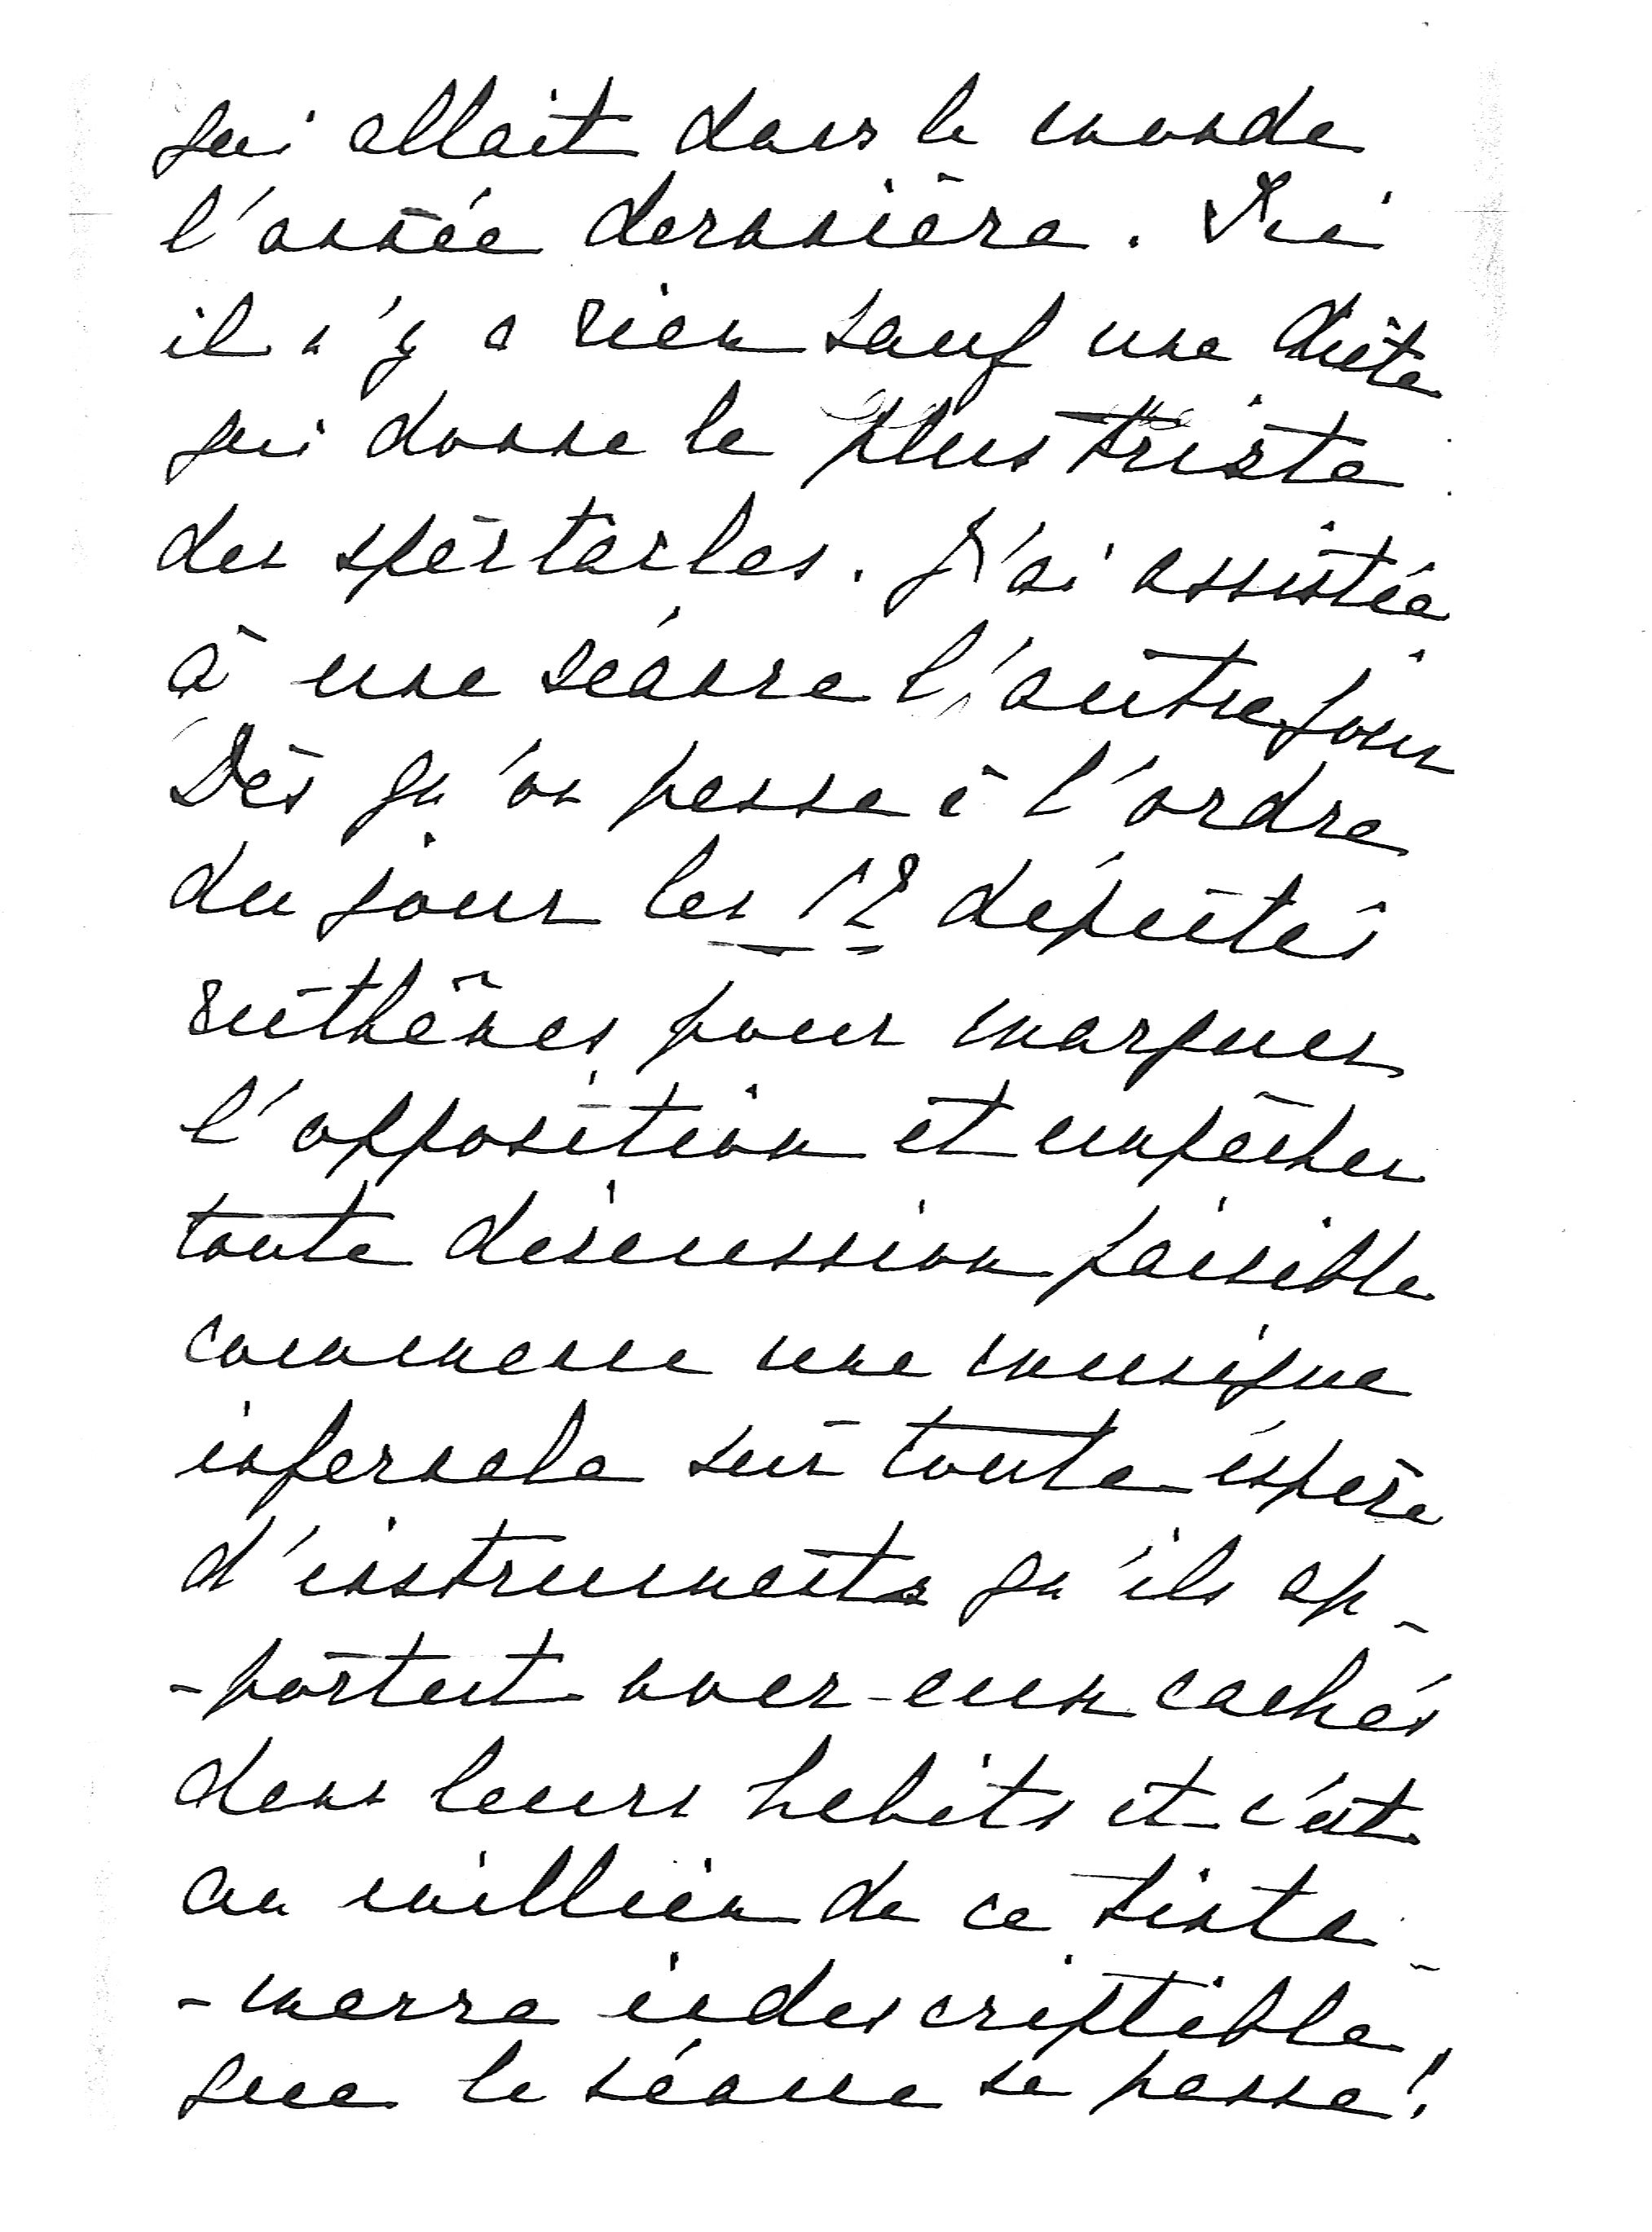 qui allait dans le monde
l'année dernière. Ici
il n'y a rien sauf une diète
qui donne le plus triste
des spectacles. J'ai assistée
à une séance l'autre jour
Dès qu'on passe à l'ordre
du jour les 12 députés
ruthènes pour marquer
l'opposition et empêcher
toute discussion paisible
commence une musique
infernale sur toute espèce
d'instruments qu'ils ap-
-portent avec eux cachés
dans leurs habits et c'est
au millieu de ce tinta-
-marre indescriptible
que la séance se passe!